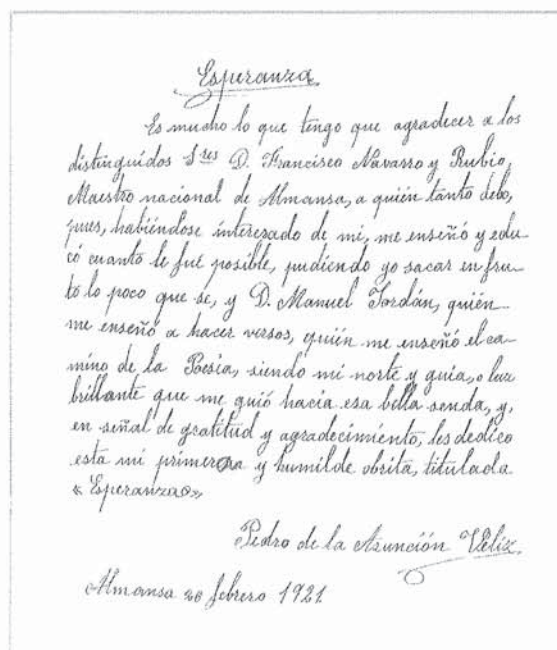 Esperanza
Es mucho lo que tengo que agradecer a los
distinguidos Sres D. Francisco Navarro y Rubio,
Maestro nacional de Almansa, a quién tanto debo,
pues, habiéndose interezado de mi, me enseñó y edu
có cuanto le fué posible, pudiendo yo sacar en fru-
to lo poco que se, y D. Manuel Jordán, quién
me enseñó a hacer versos, quién me enseñó el ca-
mino de la Poesía, siendo mi norte y guía, o luz
brillante que me guió hacia esa bella senda, y,
en señal de gratitud y agradecimiento, les dedico
esta mi primera y humilde obrita, titulada
« Esperanza»
Pedro de la Asunción Véliz
Almansa 20 febrero 1921